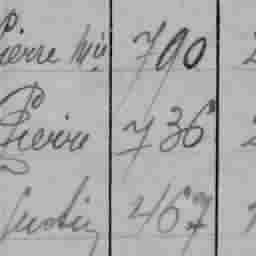 Pierre Mie 790 2
Pierre 736 2
Justin 467 1